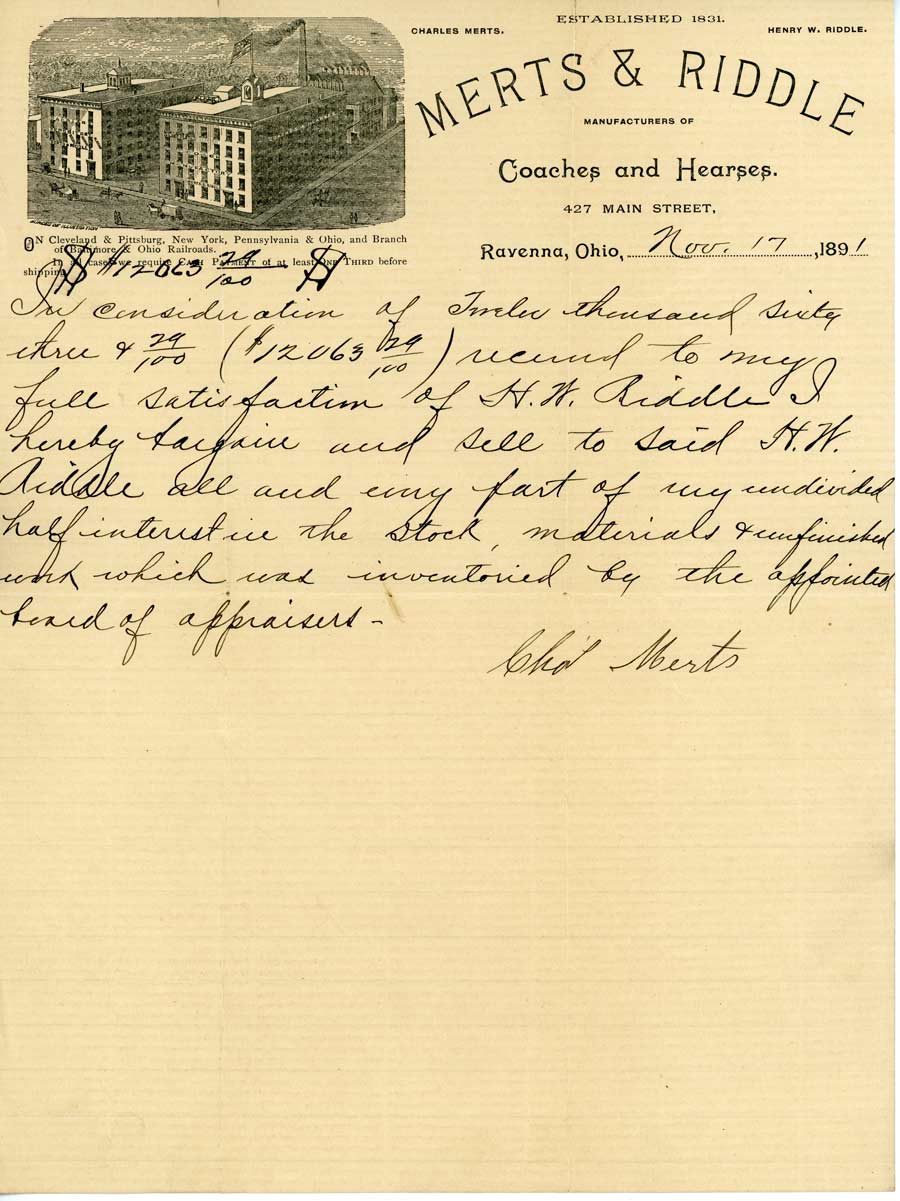 ESTABLISHED 1831.
CHARLES MERTS. HENRY W. RIDDLE.
MERTS & RIDDLE
MANUFACTURERS OF
Coaches and Hearses.
427 MAIN STREET,
Ravenna, Ohio, Nov. 17, 1891
ON Cleveland & Pittsburg, New York, Pennsylvania & Ohio, and Branch
of Baltimore & Ohio Railroads.
In all cases we require CASH PAYMENT of at least ONE THIRD before
shipping.
$12063 29/100
In consideration of Twelve thousand sixty
three & 29/100 ($12063 29/100) received to my
full satisfaction of H. W. Riddle I
hereby bargain and sell to said H. W.
Riddle all and every part of my undivided
half interest in the stock, materials & unfinished
work which was inventoried by the appointed
board of appraisers -
Chas Merts